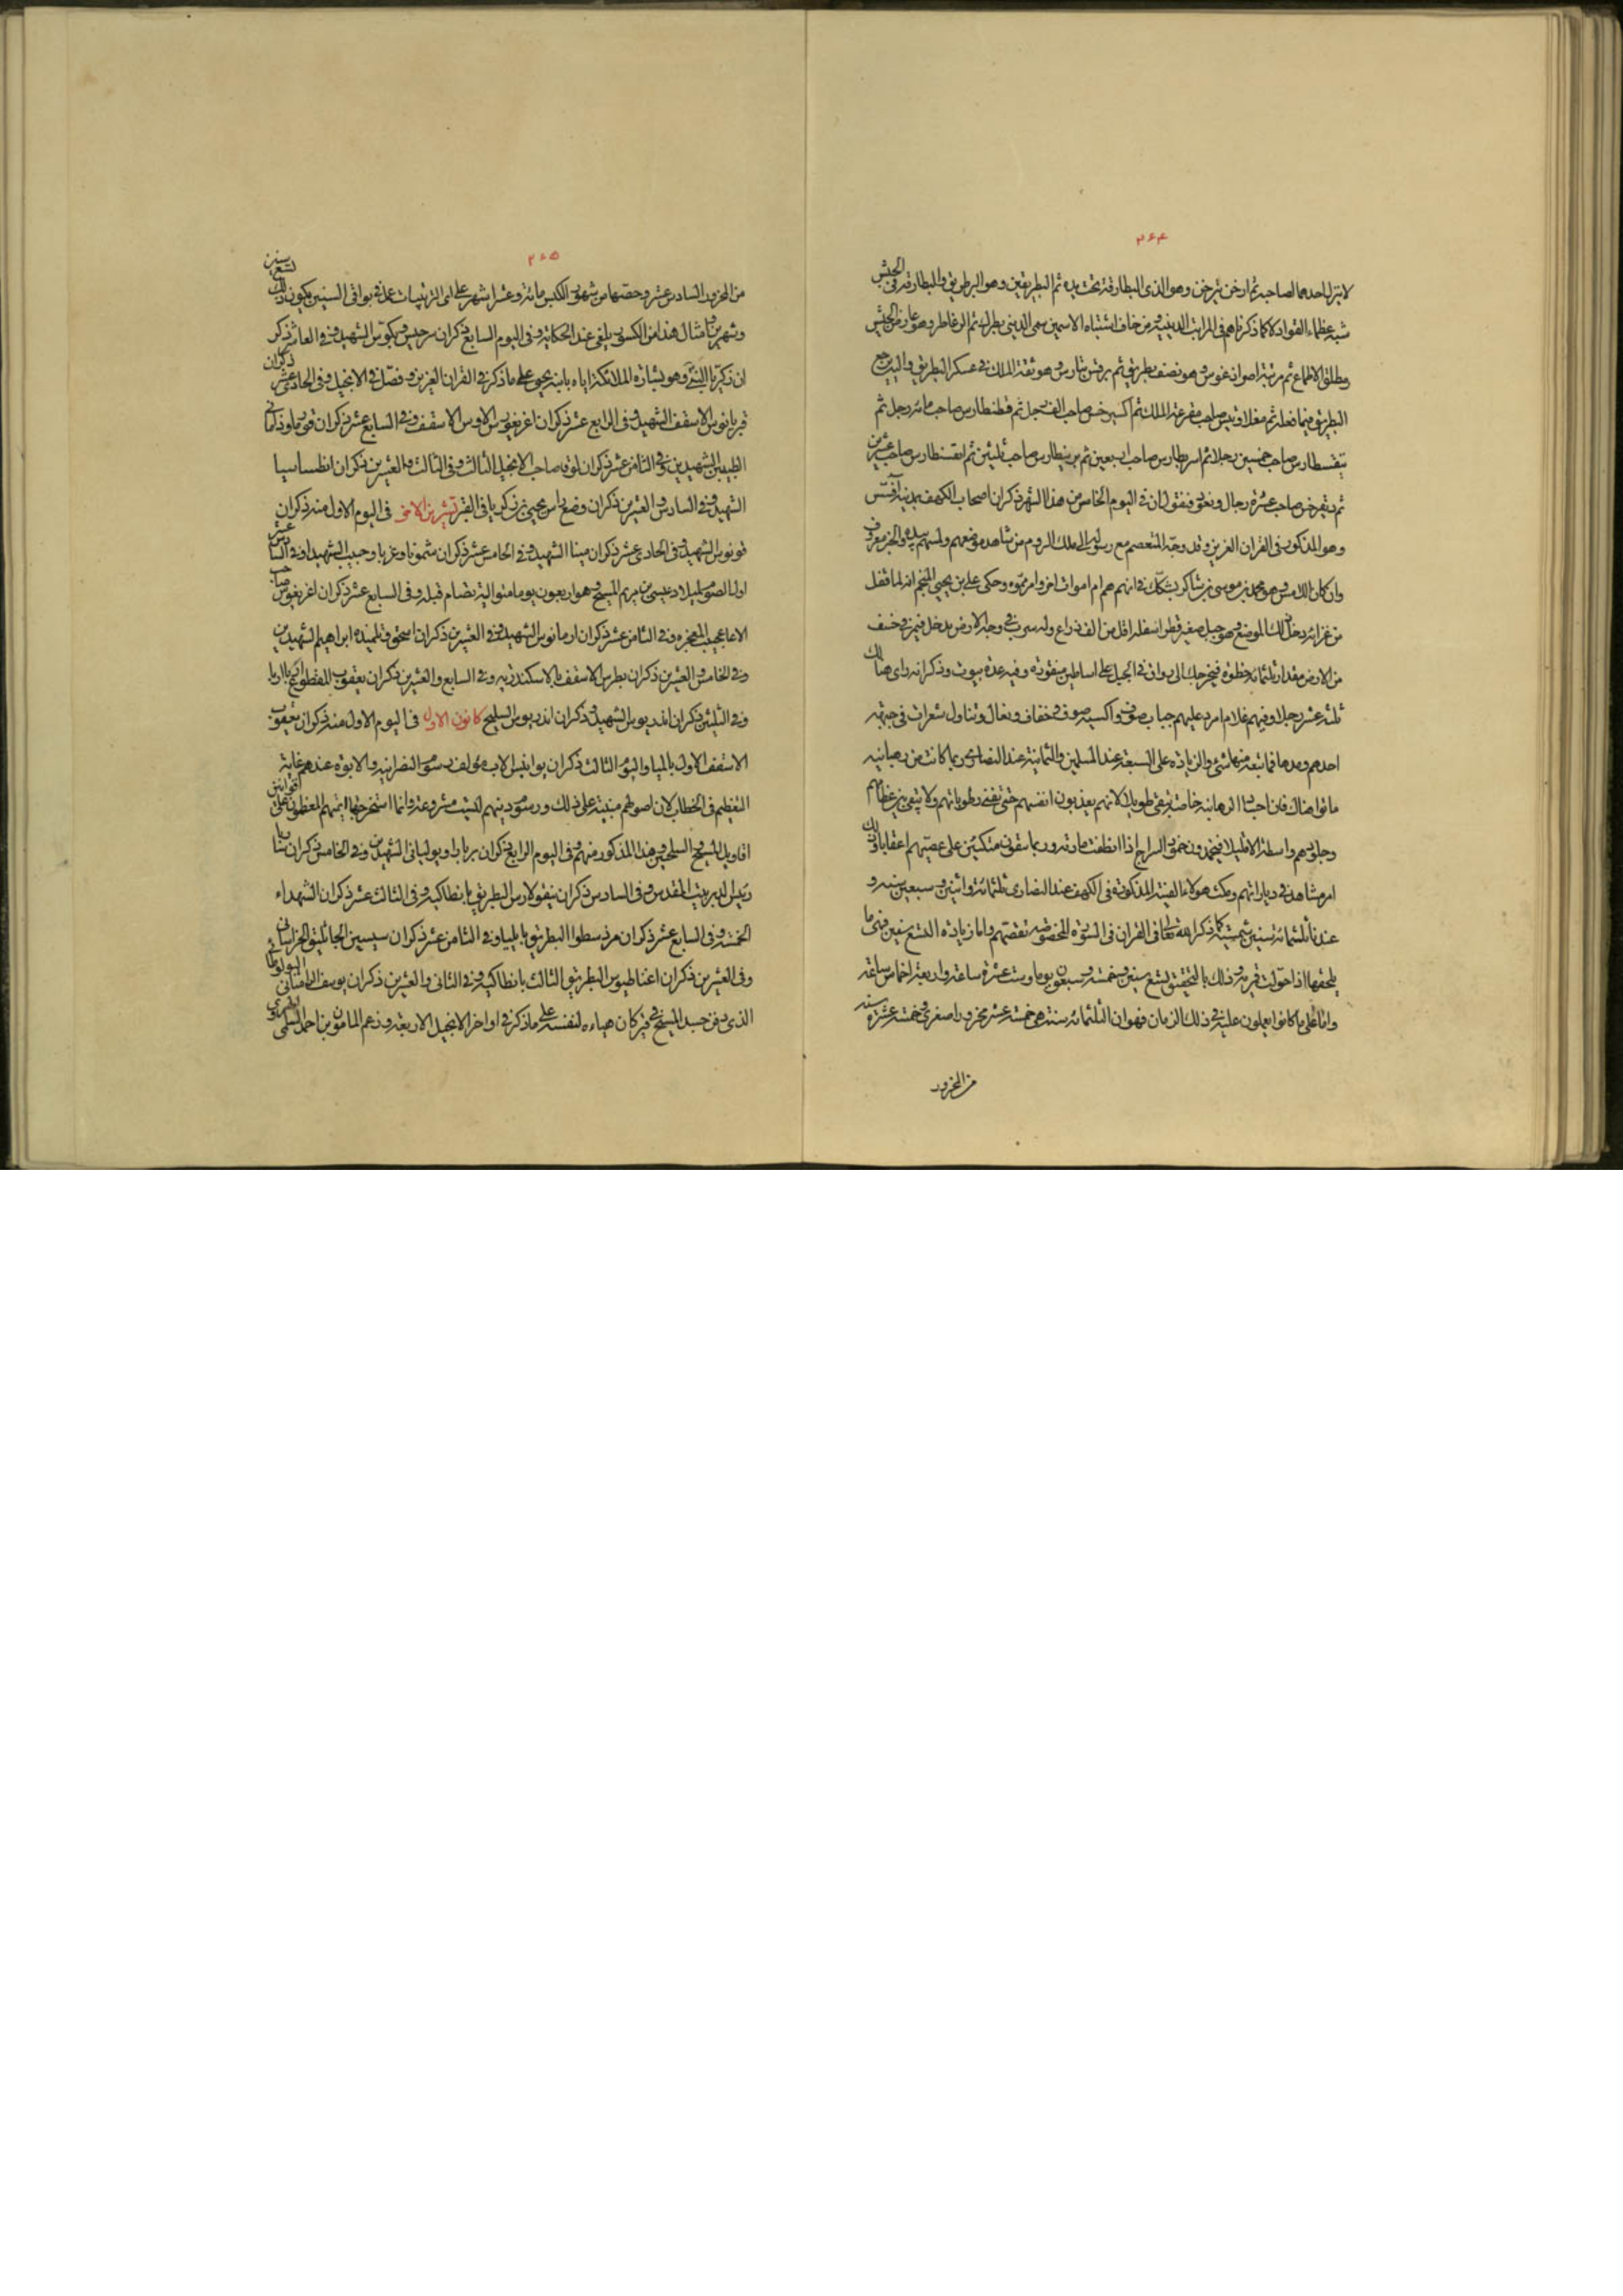 ٢٦٤
لا ينزل احدهما لصاحبه ثم ارخن برخن وهو الذى البطارقة تحت يده ثم البطريقين وهو البرطريق والبطارقة فى الجيش
شبه عظماء القواد لا كما ذكرناهم فى المراتب الدينية ومن خاف اشتباه الاسمين سمى الدينى بطرك ثم
ومطلق الاطماع ثم مرتبة وهو نصف بطريق ثم وهو ثقة الملك فى عسكر البطريق واليه يرجع
البطريق فيما فعله ثم صاحب مقرعة الملك ثم صاحب الف رجل ثم قطنطارس صاحب مائة رجل ثم
صاحب خمسين رجلا ثم صاحب اربعين ثم صاحب ثلثين ثم صاحب عشرين
ثم صاحب عشرة رجال ونعود فنقول ان فى اليوم الخامس من هذا الشهر ذكران اصحاب الكهف بمدينة افسس
وهو المذكور فى القران العزيز وقد وجه المعتصم مع رسوله الى ملك الروم من شاهد موضعهم ولمسهم بيده والخبر معروف
وان كان اللامس وهو محمد بن موسى بن شاكر يشكك فى انهم هم ام اموات اخر وامر مموه وحكى على بن يحيى المنجم انه لما قفل
من غزائه دخل ذلك الموضع وهو جبل صغير قطر اسفله اقل من الف ذراع وله سرب فى وجه الارض يدخل فيمر فى خسف
من الارض مقدار ثلثمائة خطوة فيخرجك الى رواق فى الجبل على اساطين منقورة وفيه عدة بيوت وذكر انه راى هنالك
ثلثة عشر رجلا وفيهم غلام امرد عليهم جباب صوف واكسية صوف وخفاف ونعال وتناول شعرات فى جبهة
احدهم ومدها فما تبعه منها شئ والزيادة على السبعة عند المسلمين والثمانية عند النصارى ربما كانت من رهبانية
ماتوا هناك فان اجساد الرهابنة خاصة تبقى طويلا لانهم يعذبون انفسهم حتى تفنى رطوباتهم ولا تبقى بين عظامهم
وجلودهم واسطة الا قليلا فيخمدون خمود السراج اذا انطفت مادته وربما بقوا متكئين على عصيهم اعقابا وذلك
امر مشاهد فى دياراتهم ومكث هولاء الفتية المذكورة فى الكهف عند النصارى ثلثمائة واثنين وسبعين سنة و
عندنا ثلثمائة سنين شمسية كما ذكر الله تعالى فى القران فى السورة المخصوصة بقصتهم واما زيادة التسع سنين فهى ما
يلحقها اذا حولت قمرية وذلك بالتحقيق تسع سنين وخمسة وسبعون يوما وست عشرة ساعة واربعة اخماس ساعة
واما على ما كانوا يعملون عليه فى ذلك الزمان فهو ان الثلثمائة سنة هى خمسة عشر محزورا صغرى وخمسة عشرة سنة
من المحزور
٢٦٥
من المحزور السادس عشر وحصتها من شهور الكبس مائة وعشرة اشهر على اى الترتيبات عمل فى بواقى السنين يكون ذلك لتسع سنين
وشهرين وامثال هذا من الكسور يلغى عند الحكاية وفى اليوم السابع ذكران سرجيس وبكوس الشهيد وفى العاشر ذكر
ان ذكريا النبى وهو بشارة الملائكة اياه بابنه يحيى على ما ذكر فى القران العزيز وفصل فى الانجيل وفى الحادى عشر ذكران
قبريانوس الاسقف الشهيد وفى الرابع عشر ذكران اغريغوريس الاوس الاسقف وفى السابع عشر ذكران قوزما ودميانى
الطبيبين الشهيدين وفى الثامن عشر ذكران لوقا صاحب الانجيل الثالث وفى الثالث والعشرين ذكران انطساسيا
الشهيد وفى السادس والعشرين ذكران وضع راس يحيى بن زكريا فى القبر تشرين الاخر فى اليوم الاول منه ذكران
قونوس الشهيد وفى الحادى عشر ذكران مينا الشهيد وفى الخامس عشر ذكران شمونا وغريا وحبيب الشهيد وفى السادس عشر
اول الصوم لميلاد عيسى بن مريم المسيح وهو اربعون يوما متوالية تصام قبله وفى السابع عشر ذكران اغريغوس صاحب
الاعاجيب المعجزة وفى الثامن عشر ذكران ارمانوس الشهيد وفى العشرين ذكران اسحق وتلميذه ابراهيم الشهيدين
وفى الخامس والعشرين ذكران بطرس الاسقف بالاسكندرية وفى السابع والعشرين ذكران يعقوب المقطع اربا اربا
وفى الثلثين ذكران اندريوس الشهيد وذكران اندريوس السليح كانون الاول فى اليوم الاول منه ذكران يعقوب
الاسقف الاول بايليا واليوم الثالث ذكران يوانيس الاب مؤلف رسوم النصرانية والابوة عندهم غاية
التعظيم فى الخطاب لان اصولهم مبنية على ذلك ورسوم دينهم ليست مشروعة وانما استخرجها ائمتهم المعظمون على قوانين
اقاويل المسيح والسليحين وهذا المذكور منهم وفى اليوم الرابع ذكران بربارا ويوليانى الشهيدين وفى الخامس ذكران
رئيس الدير ببيت المقدس وفى السادس ذكران نيقولاوس البطريق بانطاكية وفى الثالث عشر ذكران الشهداء
الخمسة وفى السابع عشر ذكران مودسطوا البطريق بايليا وفى الثامن عشر ذكران سيسين الجاثليق الخراسانى
وفى العشرين ذكران اغناطيوس البطريق الثالث بانطاكية وفى الثانى والعشرين ذكران يوسف الرامثانى البولوطا
الذى دفن جسد المسيح فى قبر كان هياه لنفسه على ما ذكر فى اواخر الاناجيل الاربعة وزعم المامون بن احمد السلمى الهروى